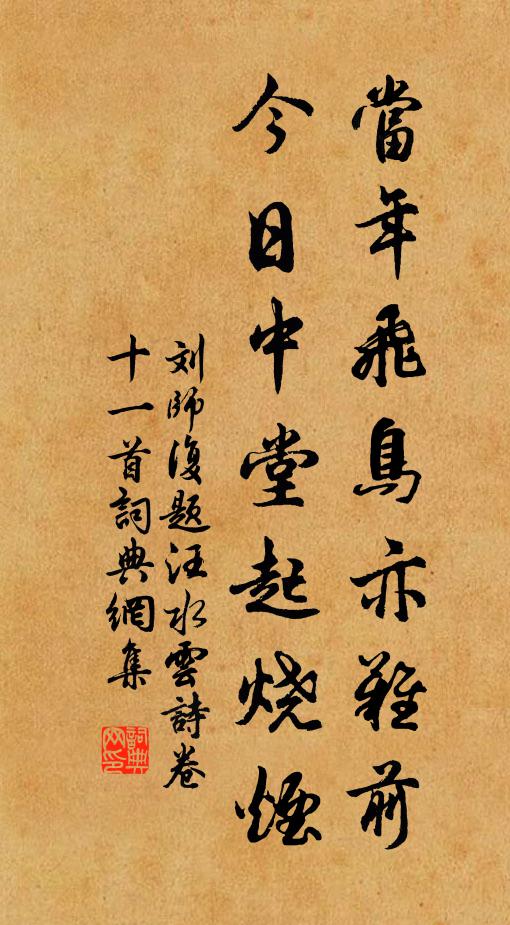 當年飛鳥亦難前
今日中堂起燒煙
刘師復題汪水雲詩卷
十一首詞典網集
詞典
网印